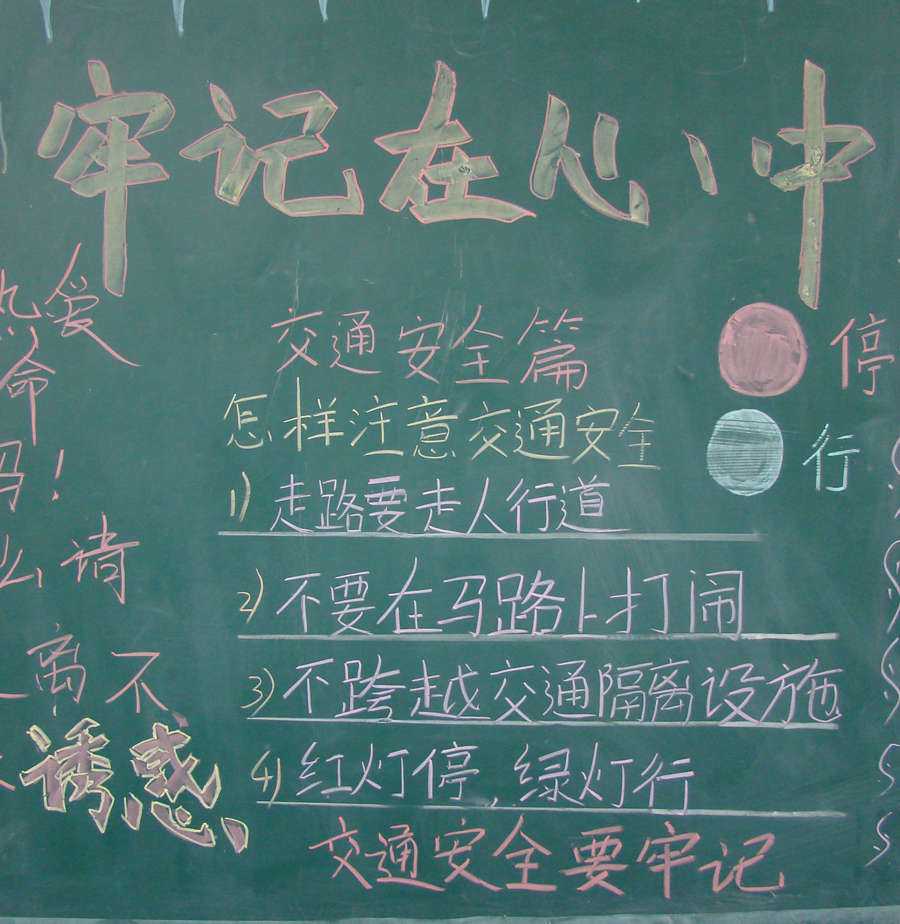 牢记在心中
热爱
命
吗！
么请
离不
诱惑、
交通安全篇
怎样注意交通安全
1）走路要走人行道
2）不要在马路上打闹
3）不跨越交通隔离设施
4）红灯停，绿灯行
交通安全要牢记
停
行